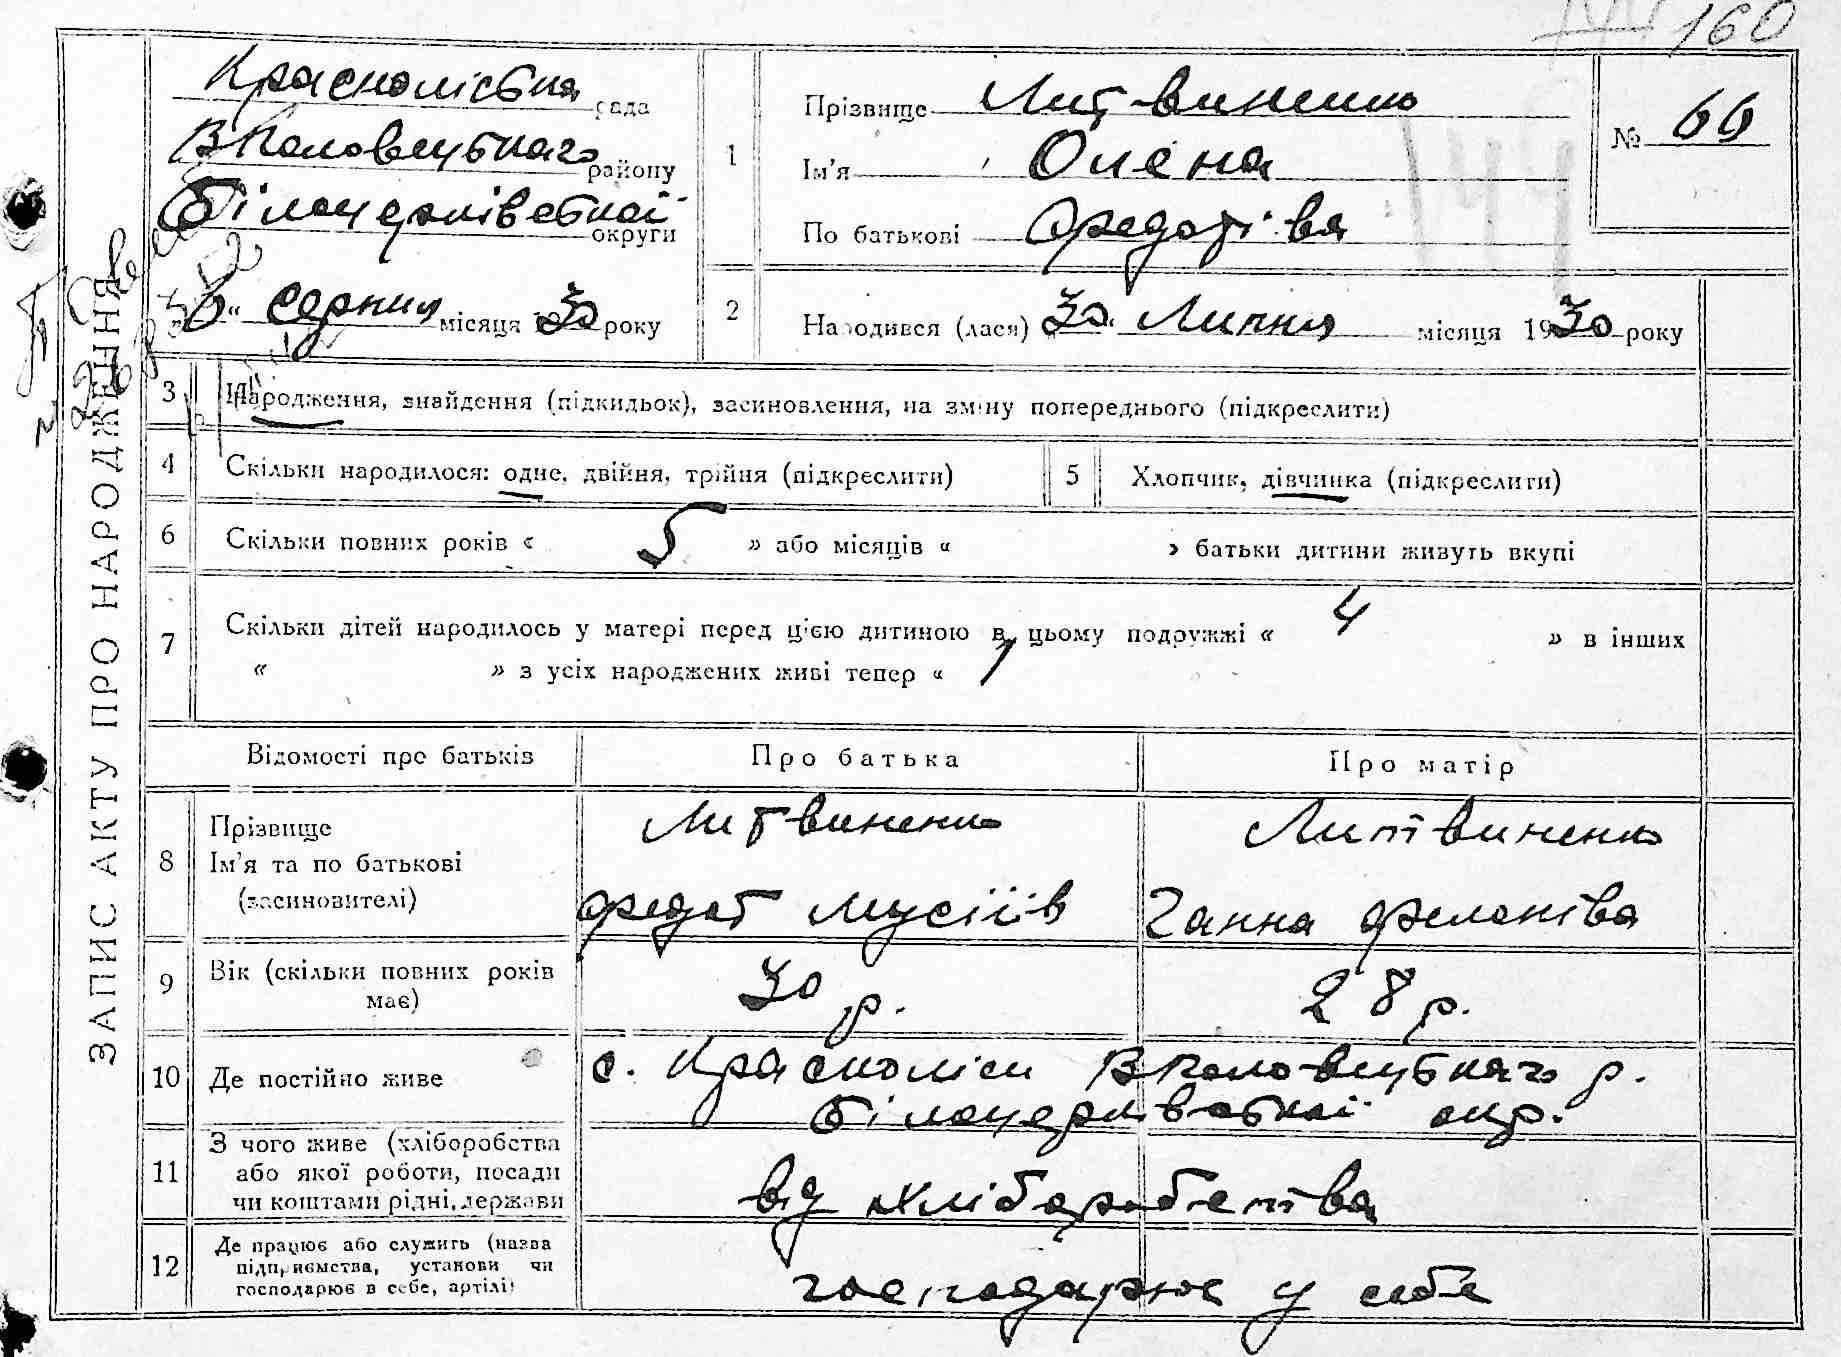 160
Красноліська рада
В Половецького району
Білоцерківської округи
„6“ серпня місяця 1930 року
1
Прізвище Литвиненко
Ім'я Олена
По батькові Федотівя
№ 66
144
2
Народився (лася) „30“ Липня місяця 1930 року
ЗАПИС АКТУ ПРО НАРОДЖЕННЯ
3 Народження, знайдення (підкидьок), засиновлення, на зміну попереднього (підкреслити)
4 Скільки народилося: одне, двійня, трійня (підкреслити)
5 Хлопчик, дівчинка (підкреслити)
6 Скільки повних років « 5 » або місяців « » батьки дитини живуть вкупі
7 Скільки дітей народилось у матері перед цією дитиною в цьому подружжі « 4 » в інших
« » з усіх народжених живі тепер « 1
Відомості про батьків Про батька Про матір
8 Прізвище
Ім'я та по батькові
(засиновителі)
Литвиненко
Федот Мусіїів
Литвиненко
Ганна Филонівна
9 Вік (скільки повних років
має)
30 р.
28 р.
10 Де постійно живе
с. Красноліси В Половецького р.
Білоцерківської окр.
11 З чого живе (хліборобства
або якої роботи, посади
чи коштами рідні, держави
від хліборобства
12 Де працює або служить (назва
підприємства, установи чи
господарює в себе, артілі)
господарює у себе